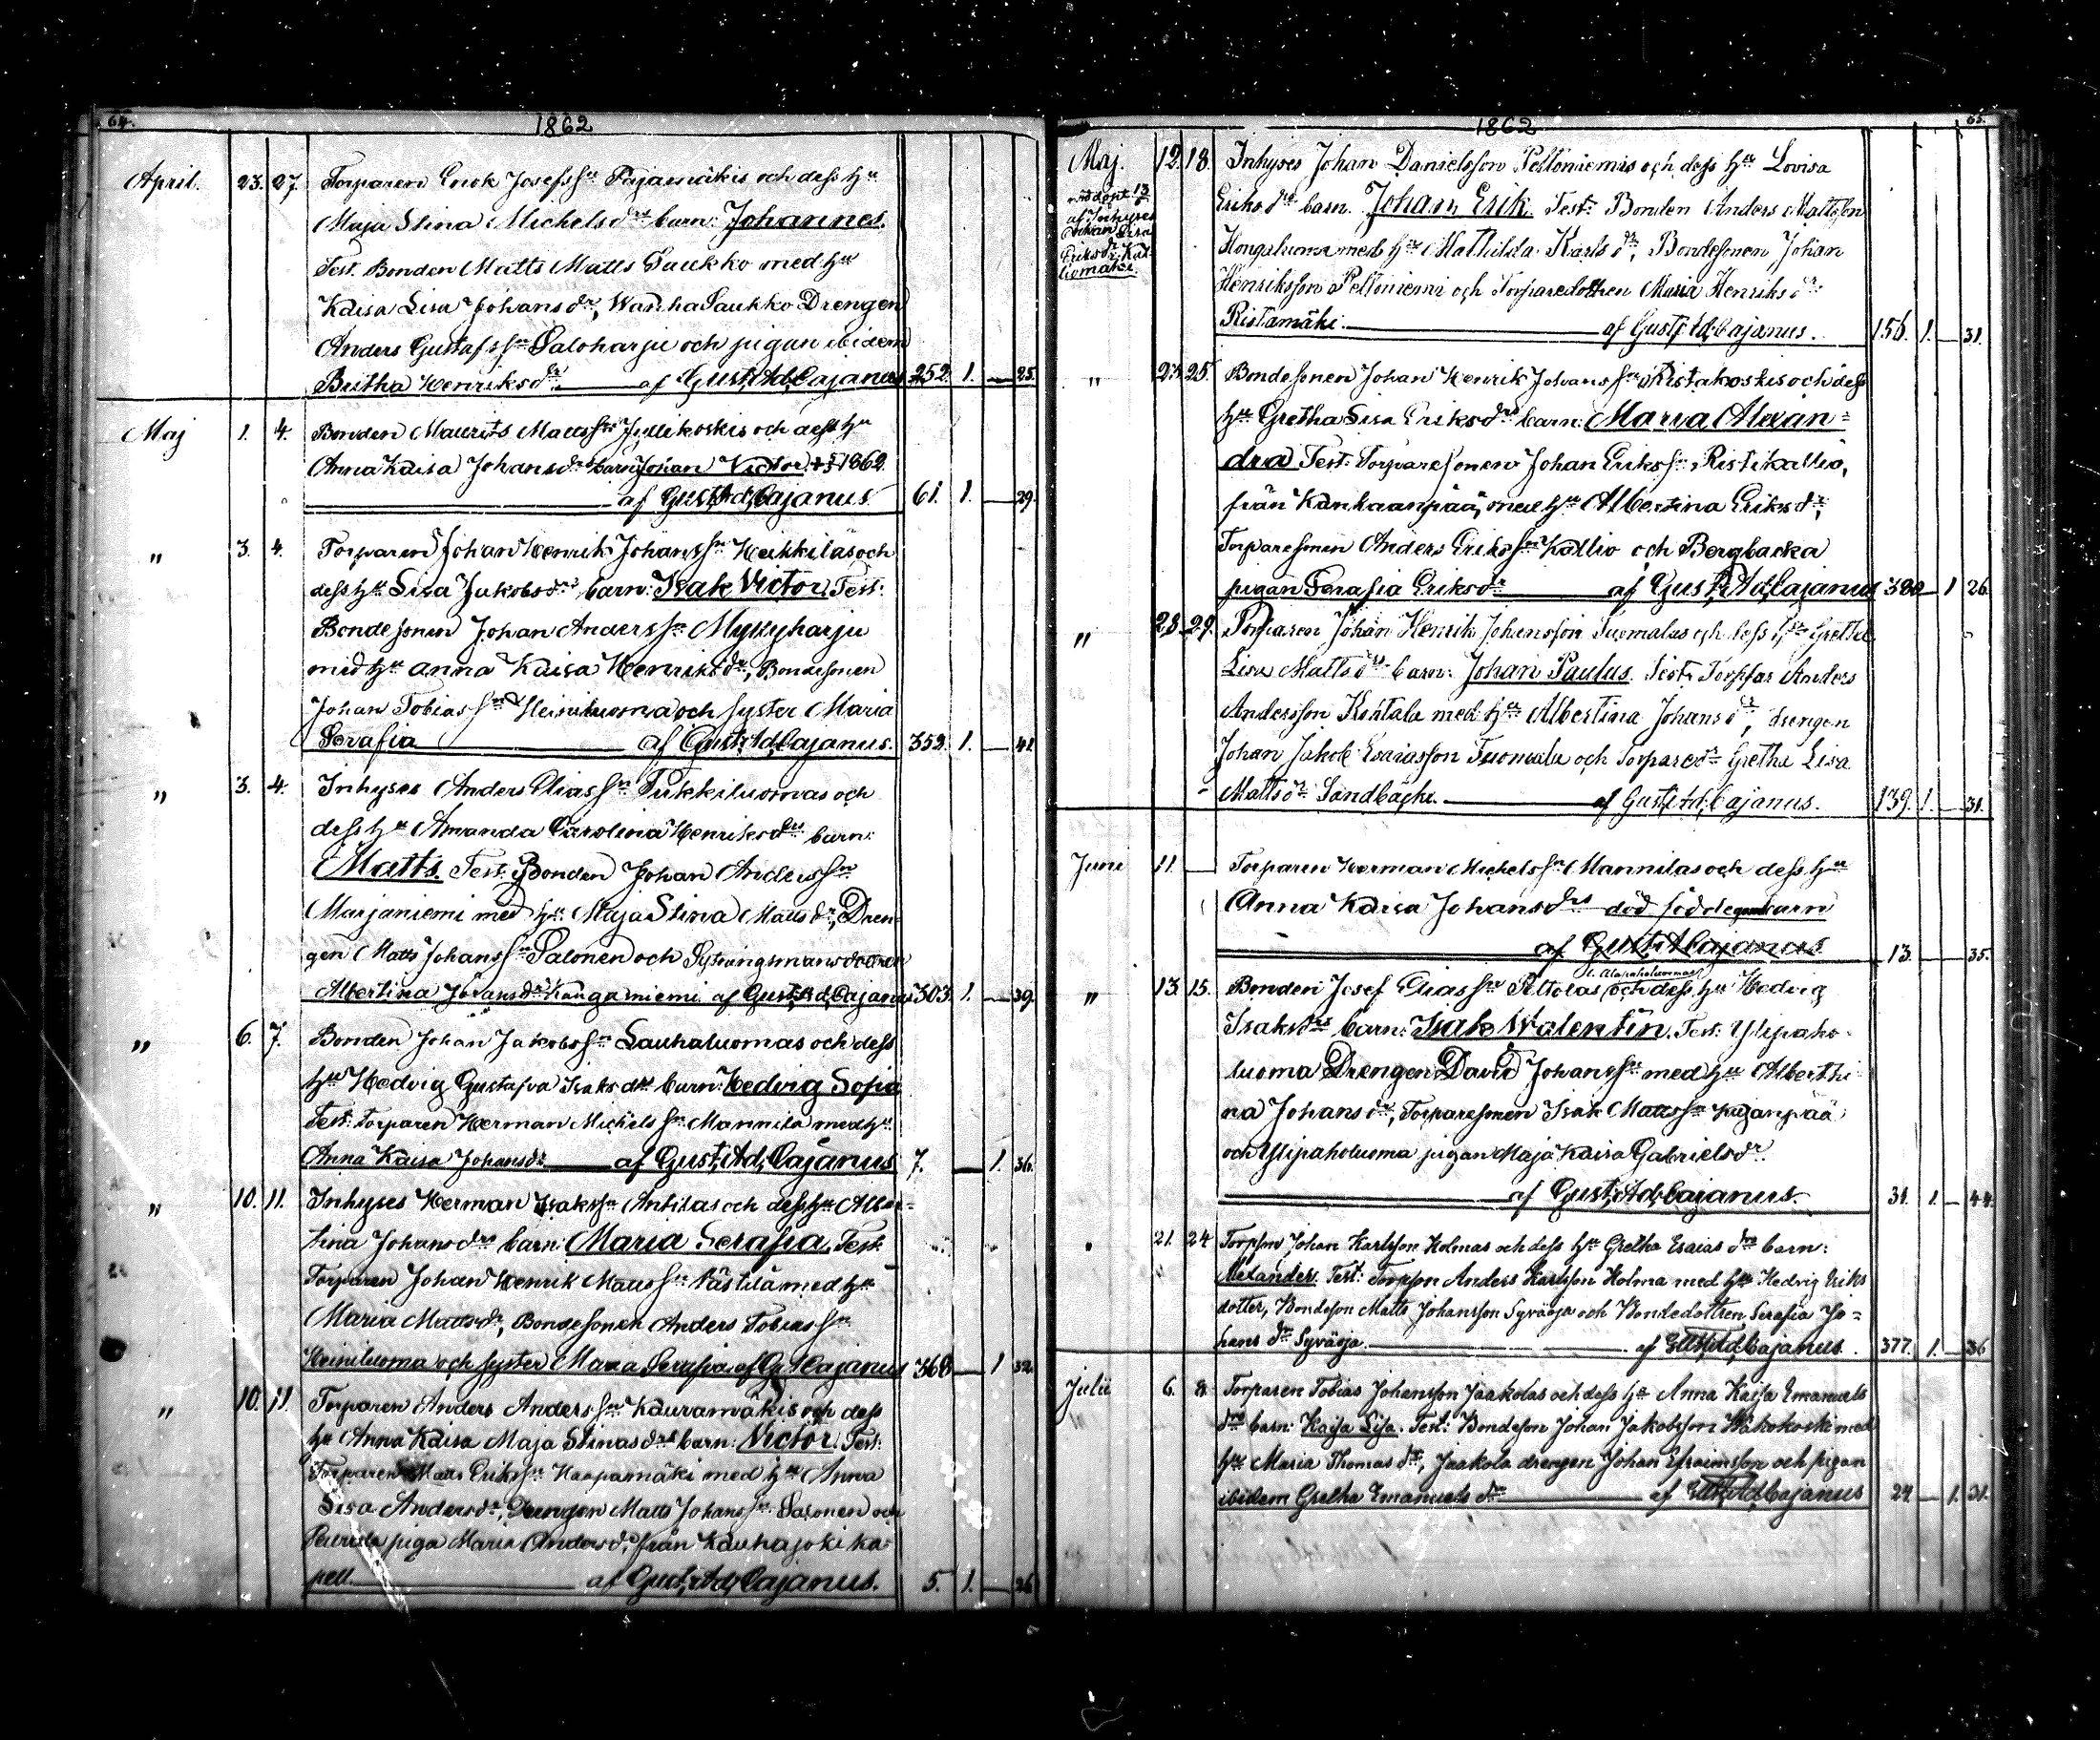 64.
1862
April. 23. 27. Torparen Erick Josefss:n Pajamäkis och dess h:u
Maja Stina Michelsd:rs barn: Johannes.
Test. Bonden Matts Matts Saukko med h:u
Kaisa Lisa Johansd:r, Wanha Saukko Drengen
Anders Gustafss:n Saloharju och pigan ibidem
Britha Henriksd:r af Gust. Ad. Cajanus 252. 1. — 25.
Maj 1. 4. Bonden Maurits Mattss:n Jyllikoskis och dess h:u
Anna Kaisa Johansd:rs barn Johan Victor 1862
af Gust. Ad. Cajanus 61. 1. — 29.
" 3. 4. Torparen Johan Henrik Johanss:n Heikkiläs och
dess h:u Lisa Jakobsd:rs barn: Isak Victor. Test:
Bondesonen Johan Anderss:n Myllyharju
med h:u Anna Kaisa Henriksd:r, Bondesonen
Johan Tobiass:n Heiniluoma och syster Maria
Serafia af Gust. Ad. Cajanus. 353. 1. — 41.
" 3. 4. Inhyses Anders Eliass:n Pukkiluomas och
dess h:u Amanda Carolina Henriksd:rs barn:
Matts. Test. Bonden Johan Anderss:n
Marjaniemi med h:u Maja Stina Mattsd:r, Dren-
gen Matts Johanss:n Salonen och
Albertina Johansd:r Kangasniemi af Gust. Ad. Cajanus 303. 1. — 39.
" 6. 7. Bonden Johan Jakobss:n Lauhaluomas och dess
h:u Hedvig Gustafva Isaksd:rs barn: Hedvig Sofia
Test: Torparen Herman Michelss:n Mannila med h:u
Anna Kaisa Johansd:r af Gust. Ad. Cajanus 7. — 1. 36.
" 10. 11. Inhyses Herman Isakss:n Antilas och dess h:u Alber-
tina Johansd:rs barn: Maria Serafia. Test:
Torparen Johan Henrik Mattss:n Västilä med h:u
Maria Mattsd:r, Bondesonen Anders Tobiass:n
Heiniluoma och syster Maria Serafia af G. A. Cajanus 368 — 1 32.
" 10. 11. Torparen Anders Anderss:n Kauramäkis och dess
h:u Anna Kaisa Maja Stinasd:rs barn: Victor. Test:
Torparen Matts Erikss:n Haapamäki med h:u Anna
Lisa Andersd:r, Drengen Matts Johanss:n Salonen och
piga Maria Andersd:r från Kauhajoki ka-
pell. af Gust. Ad. Cajanus. 5. 1. — 26
65.
1862
Maj. 12. 18. Inhyses Johan Danielsson Peltoniemis och dess h:u Lovisa
Eriksd:rs barn. Johan Erik. Test: Bonden Anders Mattsson
Hongaluoma med h:u Mathilda Karlsd:r, Bondesonen Johan
Henriksson Peltoniemi och Torparedottren Maria Henriksd:r
Ristamäki. af Gust. Ad. Cajanus. 156. 1. — 31.
" 23. 25. Bondesonen Johan Henrik Johanss:n Ristakoskis och dess
h:u Gretha Lisa Eriksd:rs barn: Maria Alexan-
dra Test: Torparesonen Johan Erikss:n Ristikallio,
från Kankaanpää, med h:u Albertina Eriksd:r,
Torparesonen Anders Erikss:n Kallio och Bergbacka
pigan Serafia Eriksd:r af Gust. Ad. Cajanus 380 — 1 26.
" 28. 29. Torparen Johan Henrik Johansson Tuomalas och dess h:u Gretha
Lisa Mattsd:rs barn: Johan Paulus. Test: Torppar Anders
Andersson Kentala med h:u Albertina Johansd:r, drengen
Johan Jakob Esaiasson Tuomala och Torpared:r Gretha Lisa
Mattsd:r Sandbacka. af Gust. Ad. Cajanus. 139. 1. — 31.
Juni 11. — Torparen Herman Michelss:n Mannilas och dess h:u
Anna Kaisa Johansd:rs död födde barn
af Gust. A. Cajanus 13. — 35.
" 13. 15. Bonden Josef Eliass:n Peltolas och dess h:u Hedvig
Isaksd:rs barn: Isak Walentin. Test: Ylipaho-
luoma Drengen David Johanss:n med h:u Alberthi-
na Johansd:r, Torparesonen Isak Mattss:n
och Ylipaholuoma pigan Maja Kaisa Gabrielsd:r.
af Gust. Ad. Cajanus. 31. 1. — 44.
21. 24. Torpson Johan Karlsson Holmas och dess h:u Gretha Esaiasd:rs barn:
Alexander. Test: Torpson Anders Karlsson Holma med h:u Hedvig Eriks
dotter, Bondeson Matts Johansson Syväoja och Bondedottren Serafia Jo-
hansd:r Syväoja. af Gust. Ad. Cajanus. 377. 1. — 36
Julii 6. 8. Torparen Tobias Johansson Jaakolas och dess h:u Anna Kaisa Emanuels
d:rs barn: Kaisa Lisa. Test: Bondeson Johan Jakobsson med
h:u Maria Thomasd:r, Jaakola drengen Johan Efraimsson och pigan
ibidem Gretha Emanuelsd:r af Gust. Ad. Cajanus 24 — 1. 31.